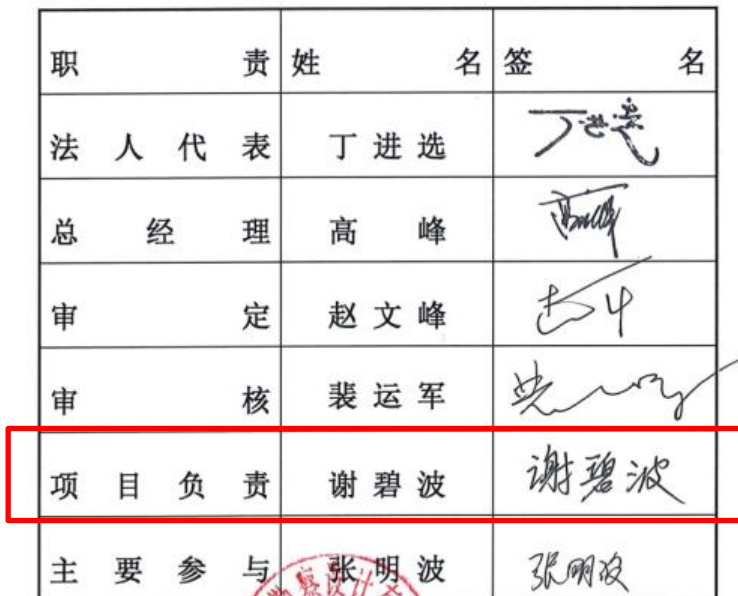 职责 姓名 签名
法人代表 丁进选 丁进选
总经理 高峰 高峰
审定 赵文峰
审核 裴运军
项目负责 谢碧波 谢碧波
主要参与 张明波 张明波
察设计